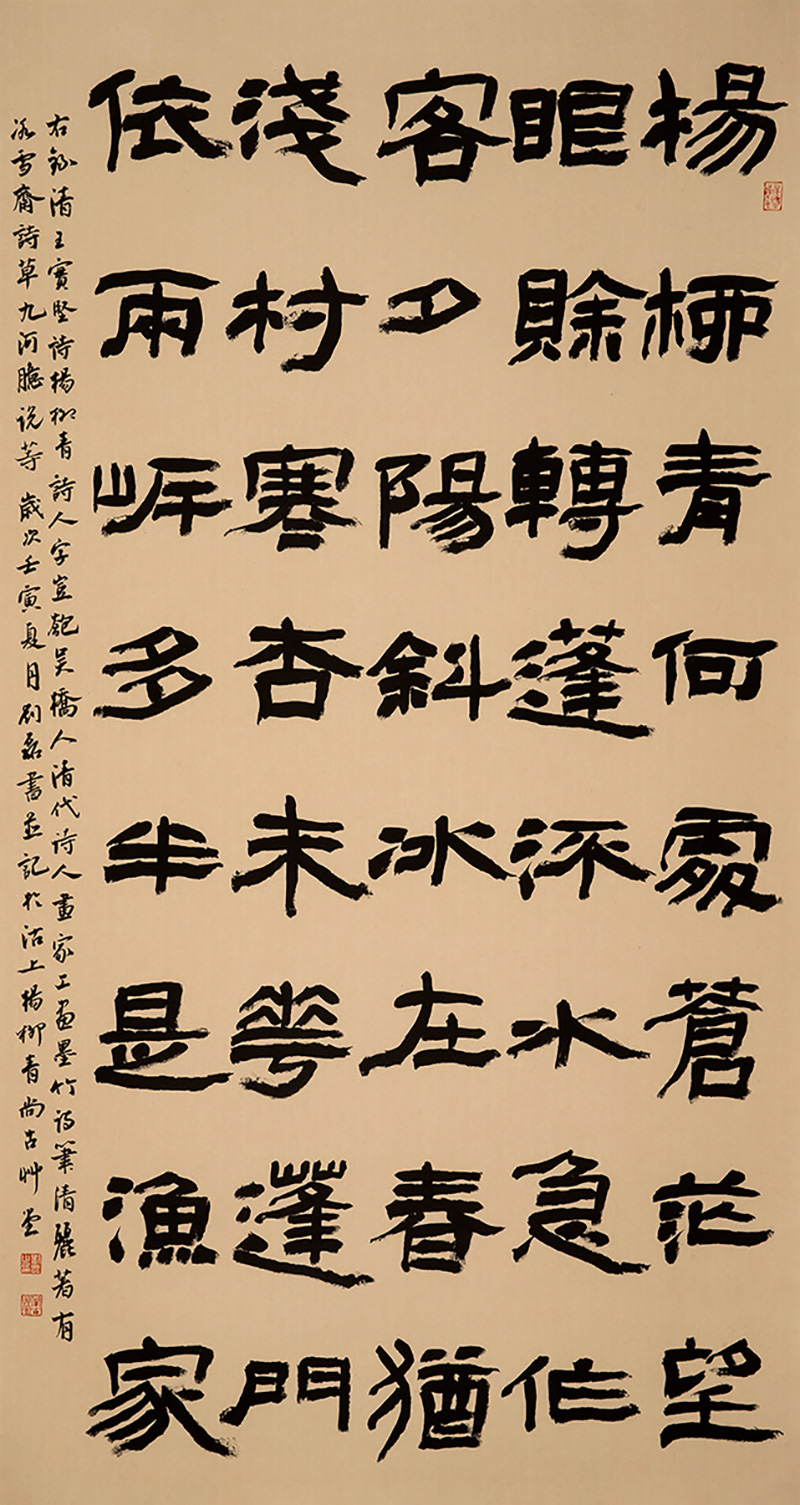 楊柳青何處蒼茫望
眼賒轉蓬㳅水急作
客夕陽斜冰在春猶
淺村寒杏未花蓬門
依兩岸多半是漁家
右錄清王實堅詩楊柳青詩人字豈匏吳橋人清代诗人畫家工畫墨竹诗筆清麗著有
冰雪齋詩草九河臆说等歲次壬寅夏月刘磊書並記於沽上楊柳青尚古艸堂